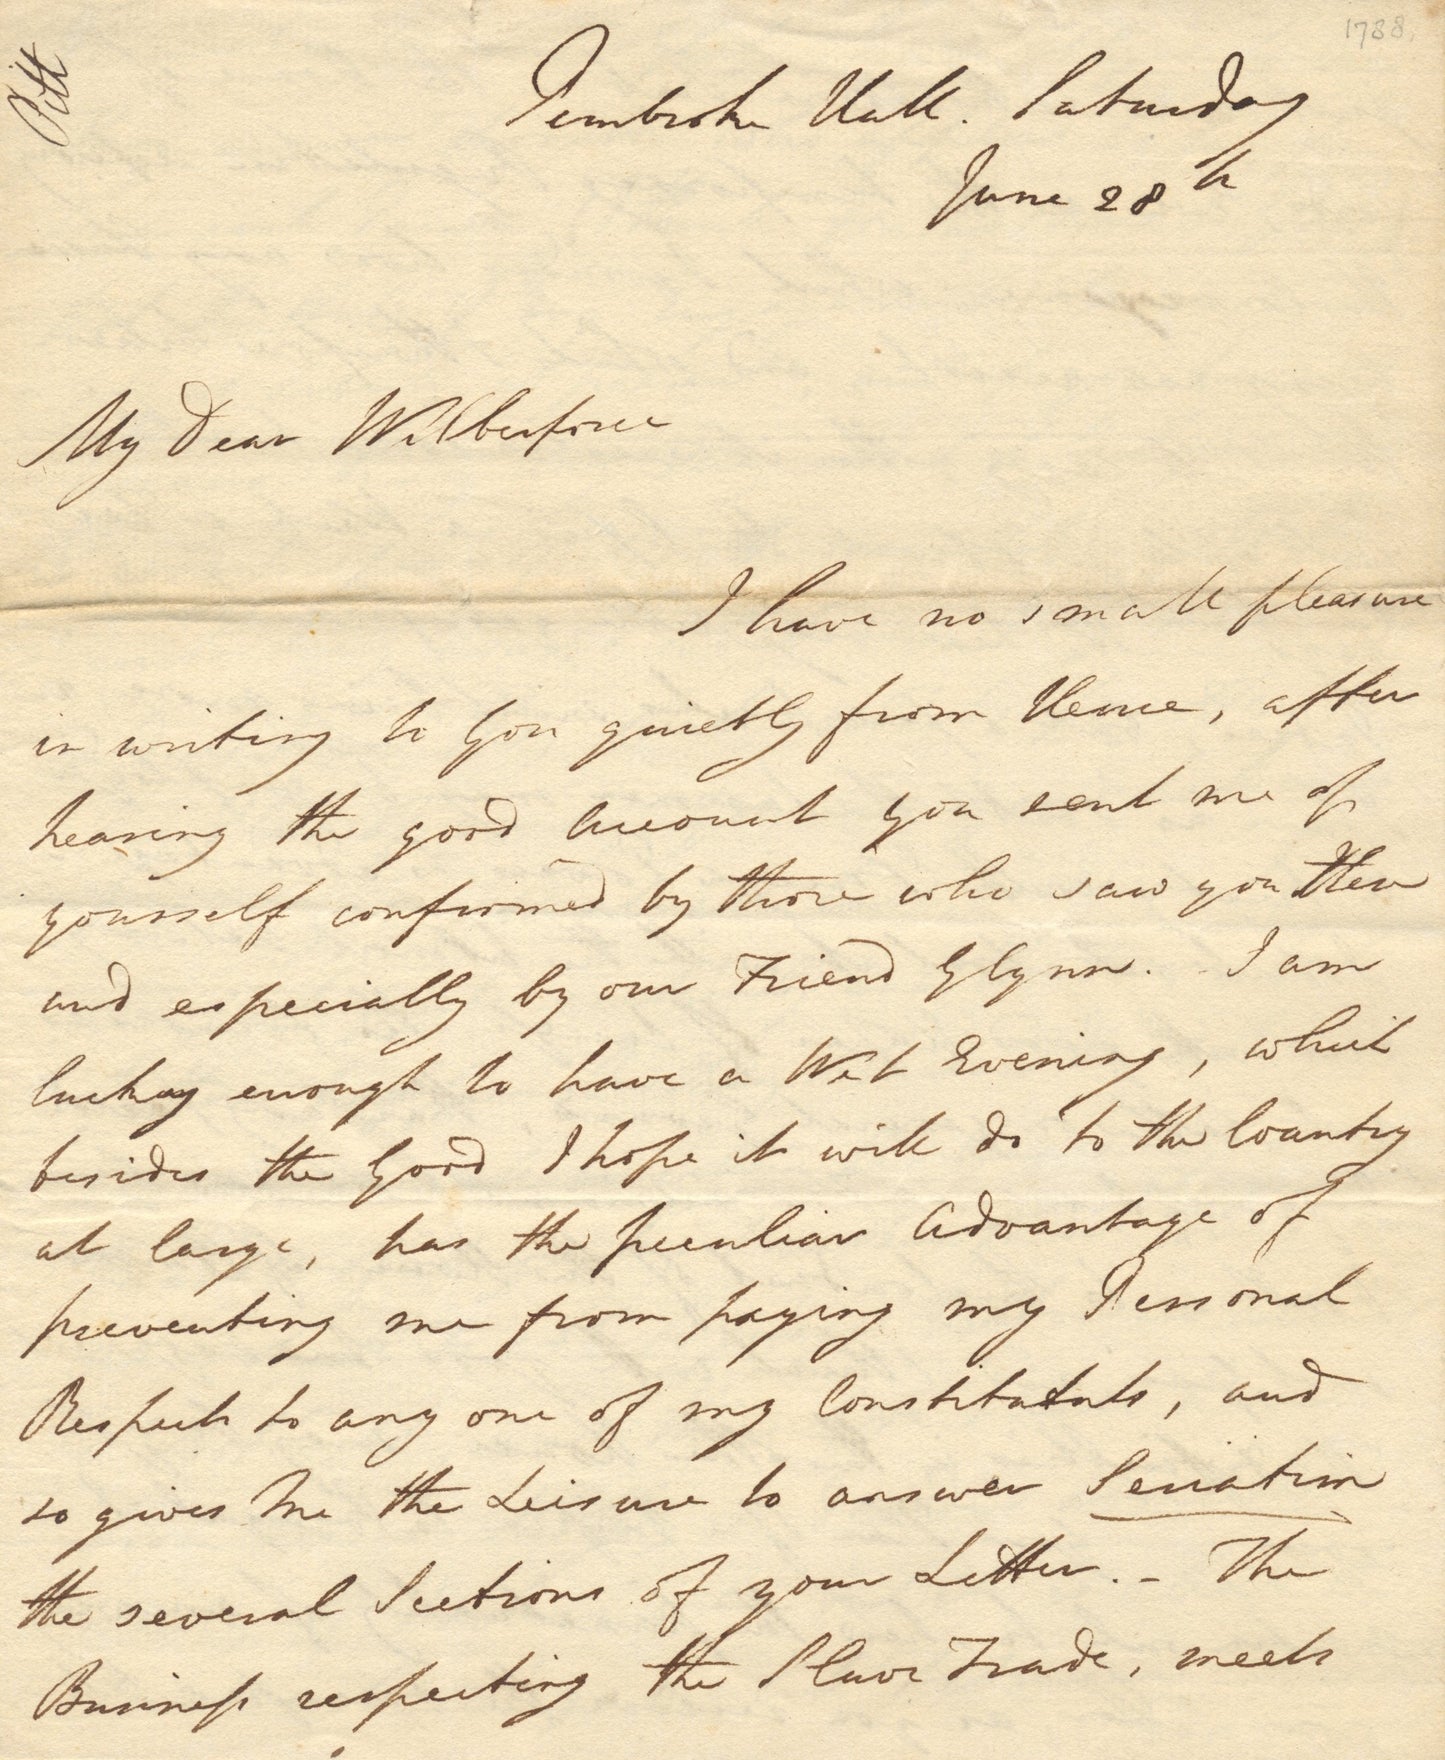 1788.
Pitt
Pembroke Hall. Saturday
June 28th
My Dear Wilberforce
I have no small pleasure
in writing to You quietly from Hence, after
hearing the good Account you sent me of
yourself confirmed by those who saw you then
and especially by our Friend Glynn. - I am
lucky enough to have a Wet Evening, which
besides the Good I hope it will do to the Country
at large, has the peculiar Advantage of
preventing me from paying my Personal
Respects to any one of my Constituents, and
so gives Me the Leisure to answer Seriatim
the several Sections of your Letter. - The
Business respecting the Slave Trade, meets